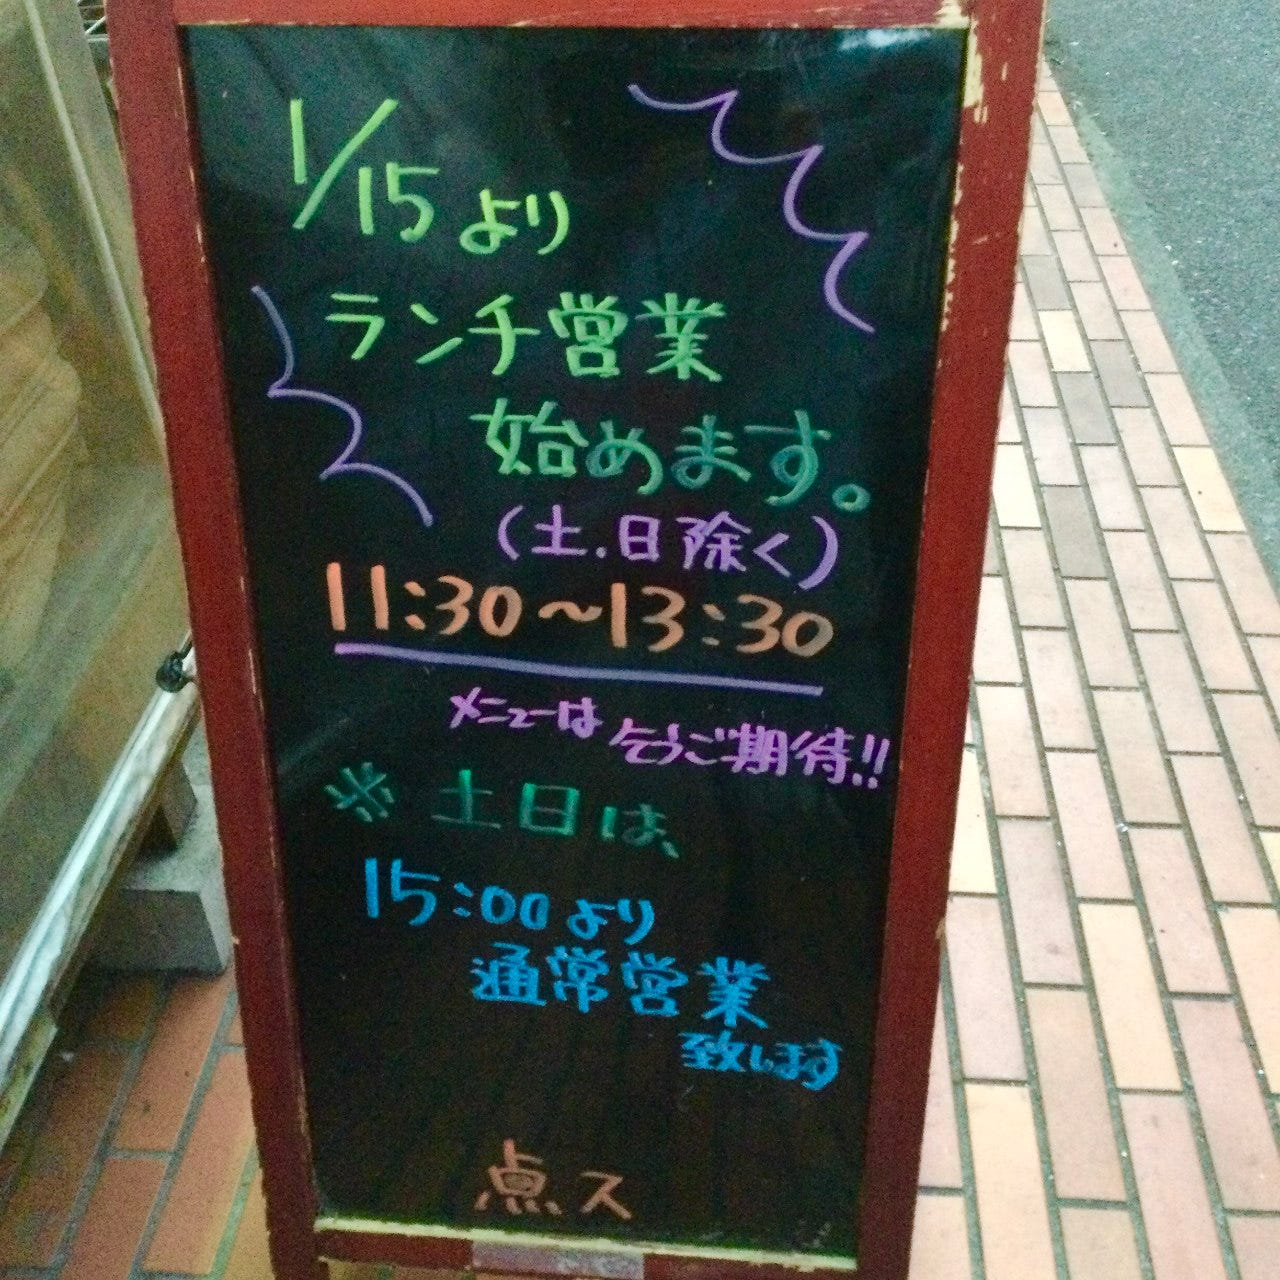 1/15より
ランチ営業
始めます。
(土.日除く)
11:30～13:30
メニューは
乞うご期待!!
※土日は、
15:00より
通常営業
致します
点ス